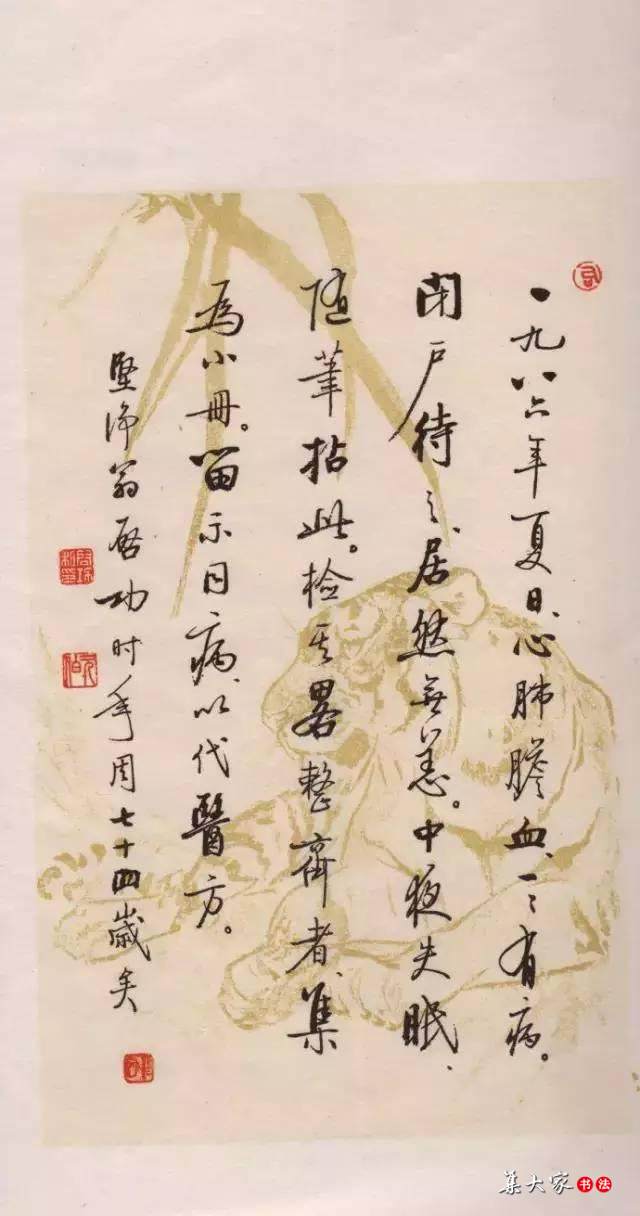 一九八六年夏日、心肺膽血、一々有病。
閉戶待之、居然無恙。中夜失眠、
随筆拈此。檢其畧整齊者、集
為小冊。留示同病、以代醫方。
堅净翁啓功时年周七十四歲矣
集大家书法